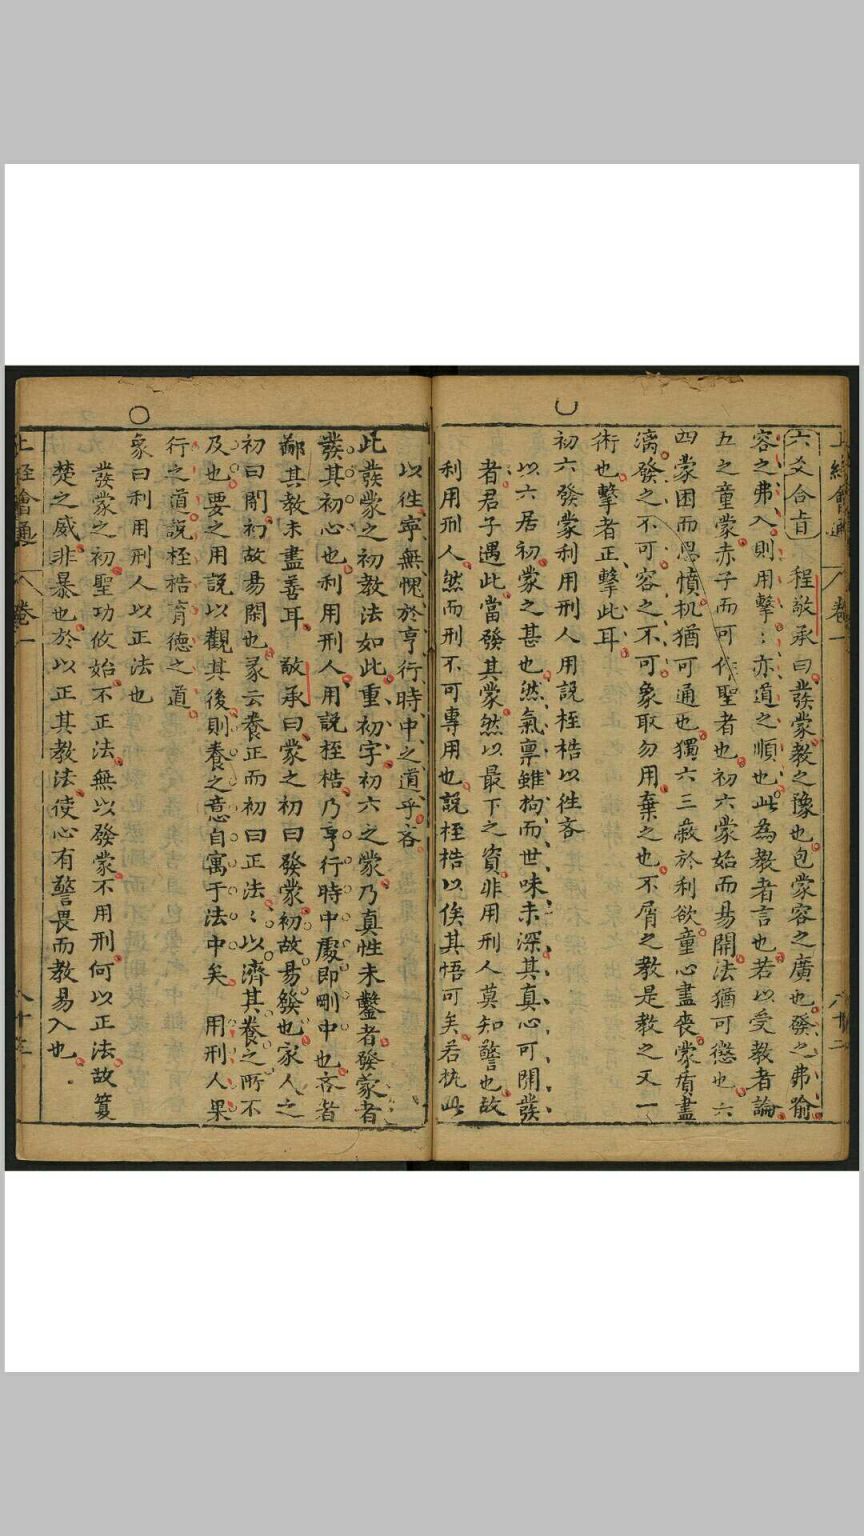 六爻合旨　程敬承曰發蒙教之豫也包蒙容之廣也發之弗喻
容之弗入則用擊：亦道之順也此為教者言也若以受教者論
五之童蒙赤子而可作聖者也初六蒙始而易開法猶可懲也六
四蒙困而思憤机猶可通也獨六三蔽於利欲童心盡喪蒙盾盡
漓發之不可容之不可象取勿用棄之也不屑之教是教之又一
術也擊者正擊此耳
初六發蒙利用刑人用說桎梏以往吝
以六居初蒙之甚也然氣禀雖拘而世味未深其真心可開發
者君子遇此當發其蒙然以最下之資非用刑人莫知警也故
利用刑人然而刑不可專用也說桎梏以俟其悟可矣若执此
以往寕無愧於亨行時中之道乎吝
此發蒙之初教法如此重初字初六之蒙乃真性未鑿者發蒙者
發其初心也利用刑人用說桎梏乃亨行時中處即剛中也吝者
鄙其教未盡善耳　敬承曰蒙之初曰發蒙初故易發也家人之
初曰閑初故易閑也彖云養正而初曰正法：以濟其養之所不
及也要之用說以觀其後則養之意自寓于法中矣　用刑人果
行之道說桎梏育德之道
象曰利用刑人以正法也
發蒙之初聖功攸始不正法無以發蒙不用刑何以正法故夏
楚之威非暴也於以正其教法使心有警畏而教易入也
上經會通　卷一　八十二
上經會通　卷一　八十三